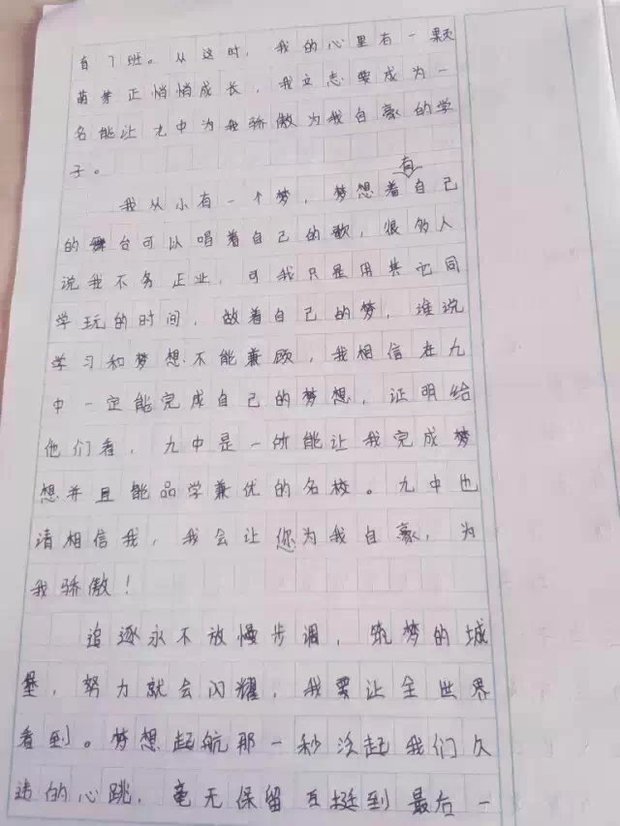 有7班。从这时，我的心里有一颗
萌芽正悄悄成长，我立志要成为一
名能让九中为我骄傲为我自豪的学
子。
我从小有一个梦，梦想着有自己
的舞台可以唱着自己的歌，很多人
说我不务正业，可我只是用其它同
学玩的时间，做着自己的梦，谁说
学习和梦想不能兼顾，我相信在九
中一定能完成自己的梦想，证明给
他们看，九中是一所能让我完成梦
想并且能品学兼优的名校。九中也
请相信我，我会让您为我自豪，为
我骄傲！
追逐永不放慢步调，筑梦的城
堡，努力就会闪耀，我要让全世界
看到。梦想起航那一秒沃起我们久
违的心跳，毫无保留互挺到最后一